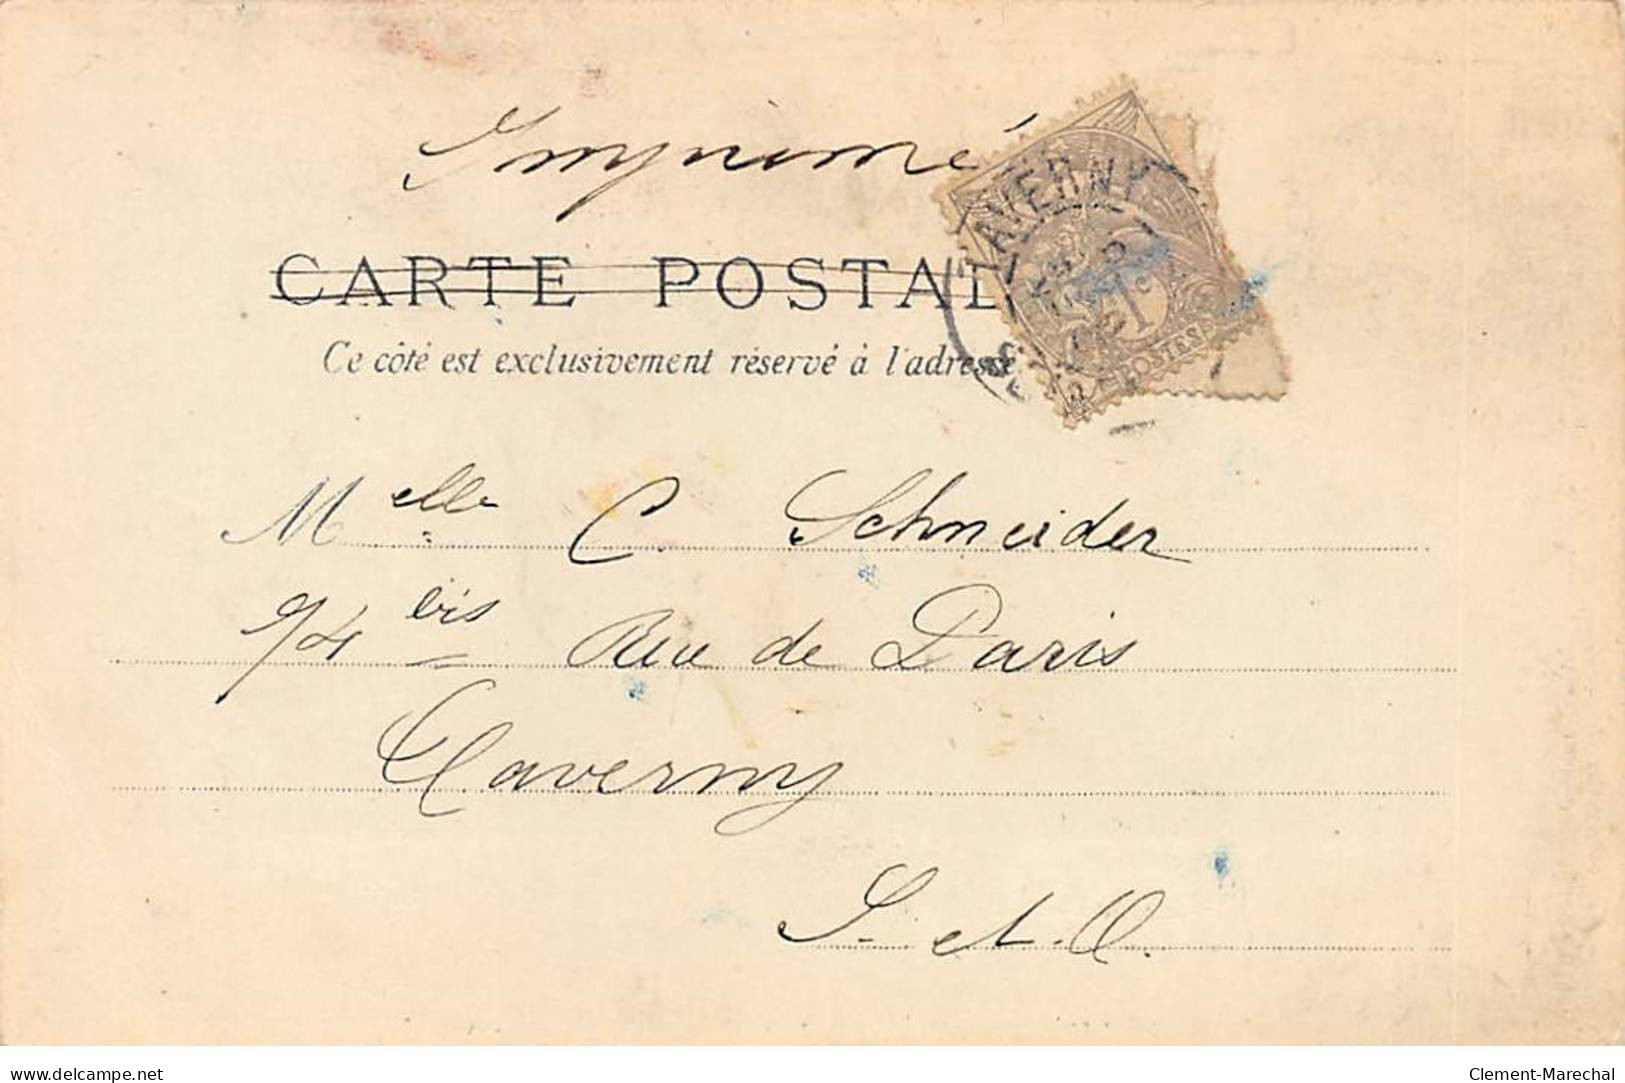 Imprimé
CARTE POSTALE
Ce côté est exclusivement réservé à l'adresse
TAVERNY
1c
POSTES
Melle C. Schneider
94 bis Rue de Paris
Taverny
S. et. O.
delcampe.net
Clement-Marechal